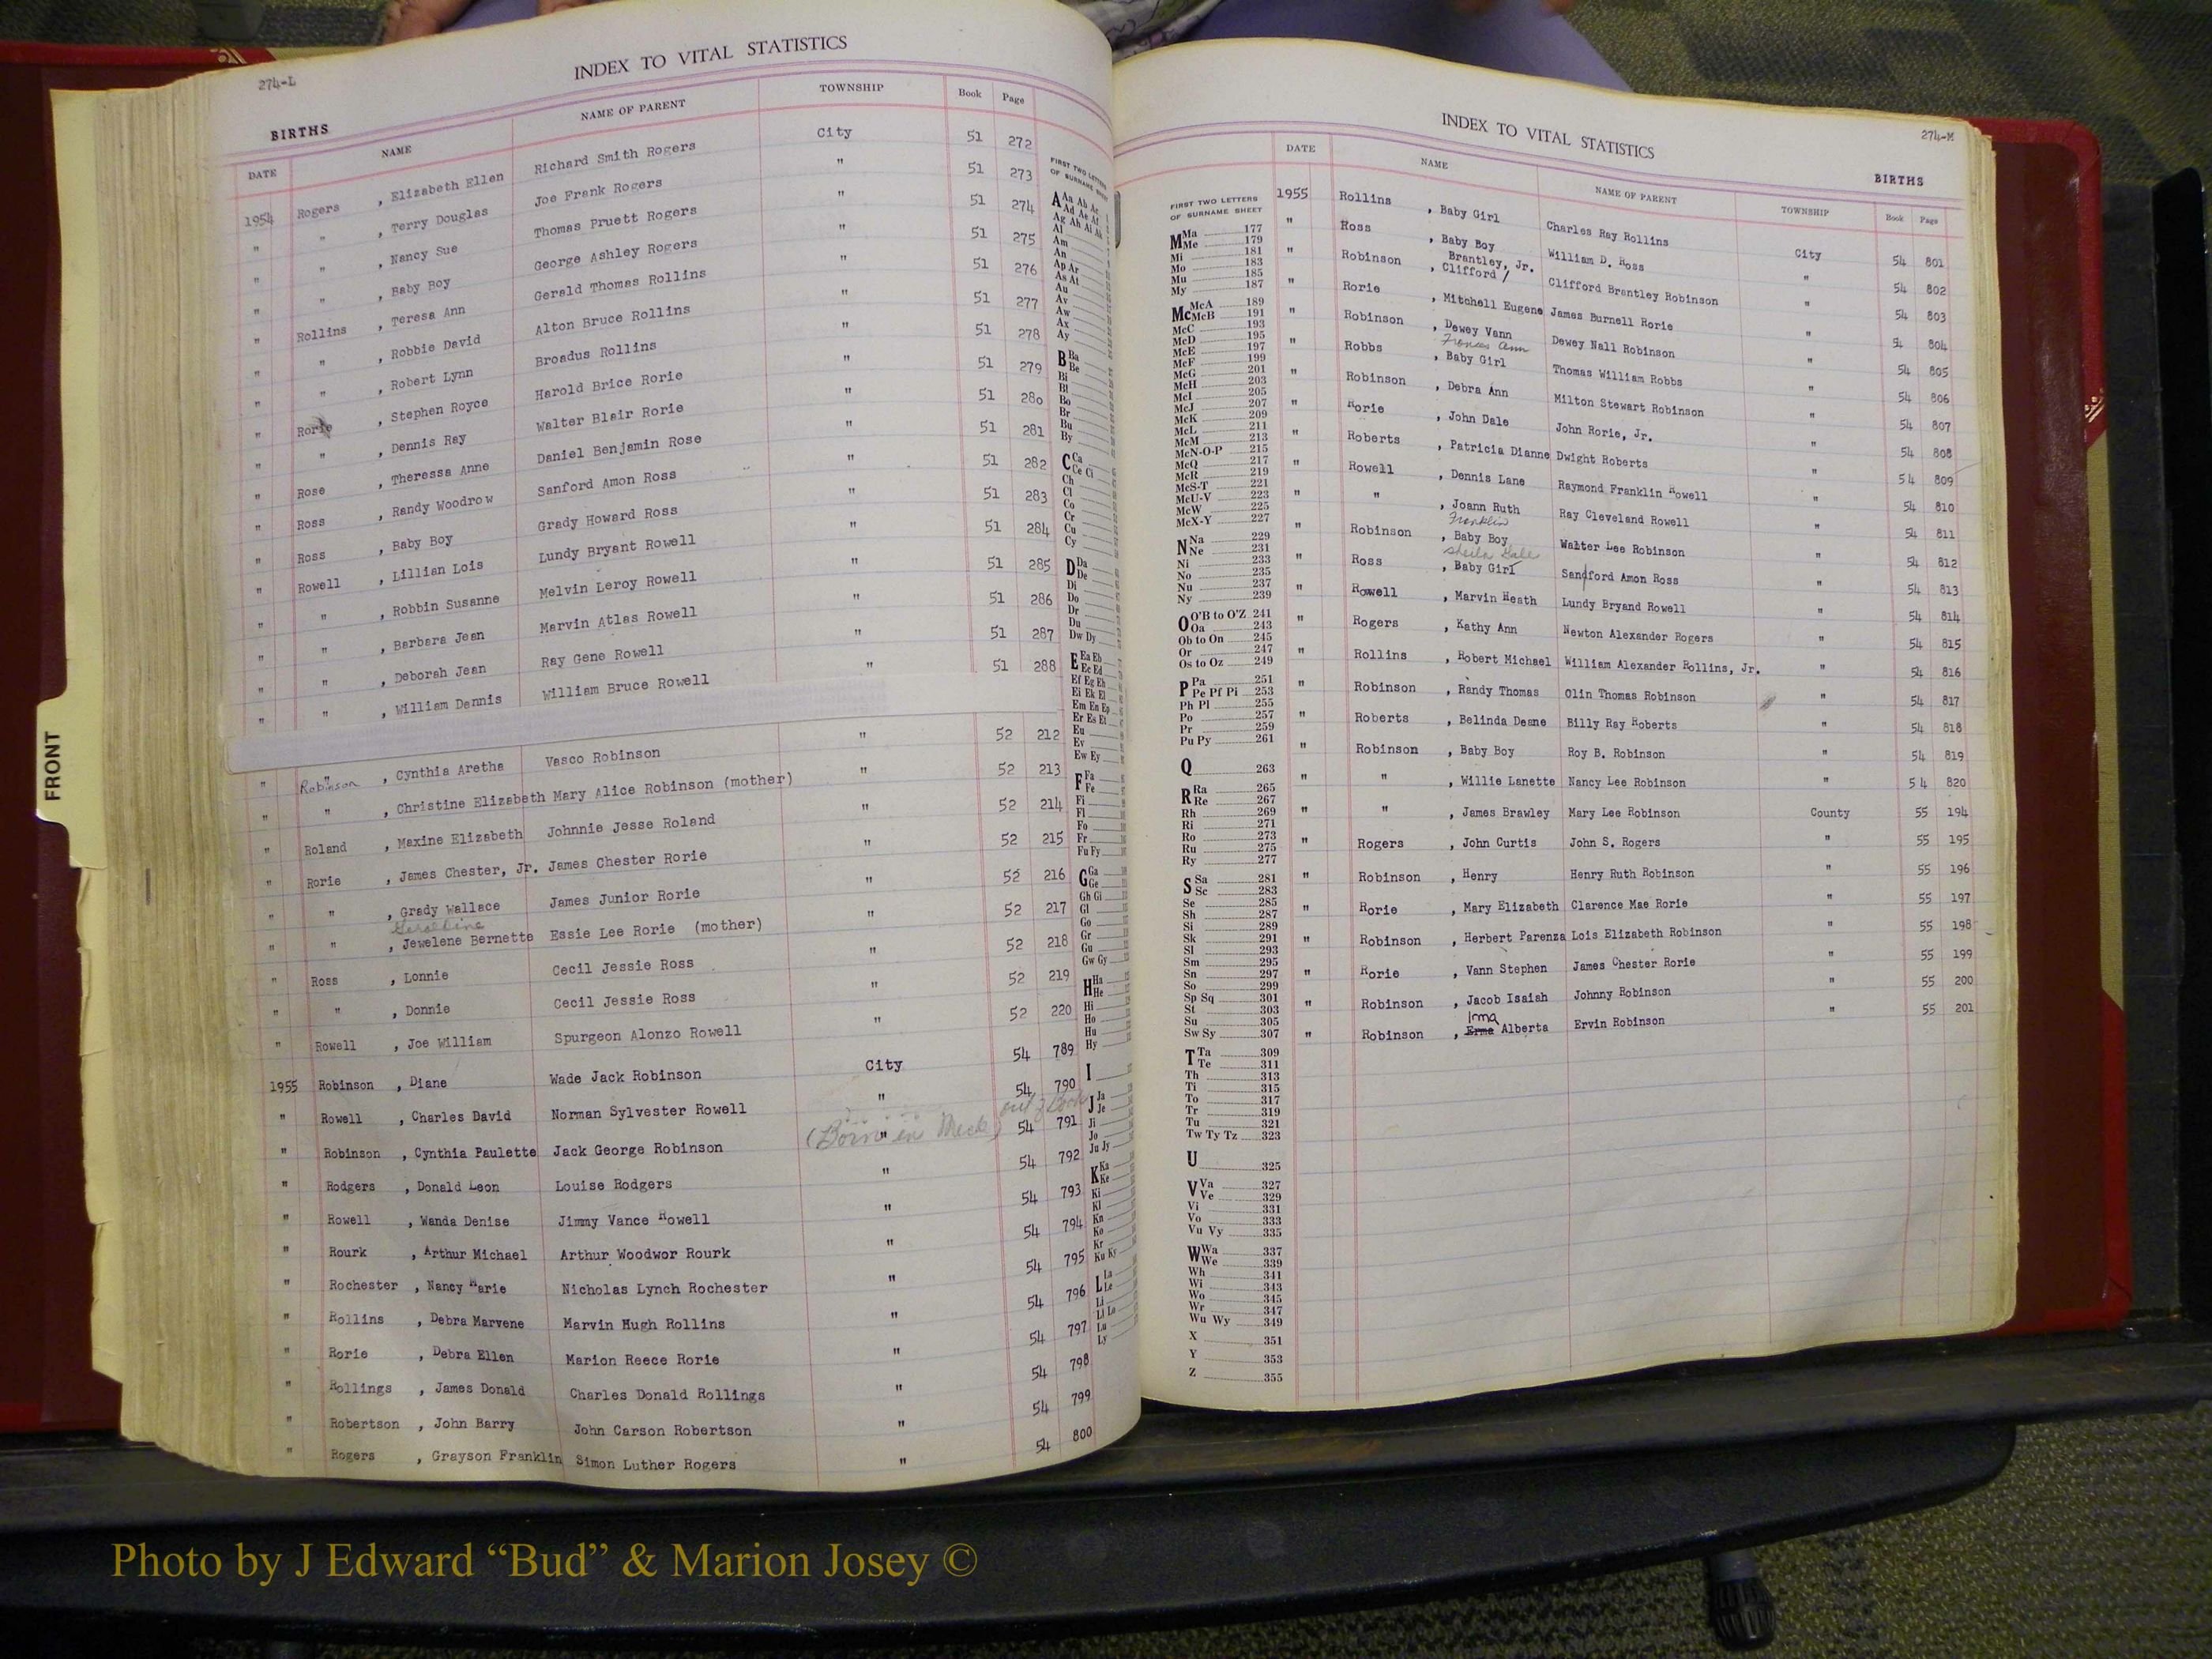 274-L
INDEX TO VITAL STATISTICS
BIRTHS
DATE NAME NAME OF PARENT TOWNSHIP Book Page
1954 Rogers , Elizabeth Ellen Richard Smith Rogers City 51 272
" " , Terry Douglas Joe Frank Rogers " 51 273
" " , Nancy Sue Thomas Pruett Rogers " 51 274
" " , Baby Boy George Ashley Rogers " 51 275
" Rollins , Teresa Ann Gerald Thomas Rollins " 51 276
" " , Robbie David Alton Bruce Rollins " 51 277
" " , Robert Lynn Broadus Rollins " 51 278
" Rorie , Stephen Royce Harold Brice Rorie " 51 279
" " , Dennis Ray Walter Blair Rorie " 51 280
" Rose , Theressa Anne Daniel Benjamin Rose " 51 281
" Ross , Randy Woodrow Sanford Amon Ross " 51 282
" Ross , Baby Boy Grady Howard Ross " 51 283
" Rowell , Lillian Lois Lundy Bryant Rowell " 51 284
" " , Robbin Susanne Melvin Leroy Rowell " 51 285
" " , Barbara Jean Marvin Atlas Rowell " 51 286
" " , Deborah Jean Ray Gene Rowell " 51 287
" " , William Dennis William Bruce Rowell " 51 288
" Robinson , Cynthia Aretha Vasco Robinson " 52 212
" " , Christine Elizabeth Mary Alice Robinson (mother) " 52 213
" Roland , Maxine Elizabeth Johnnie Jesse Roland " 52 214
" Rorie , James Chester, Jr. James Chester Rorie " 52 215
" " , Grady Wallace James Junior Rorie " 52 216
Geraldine
" " , Jewelene Bernette Essie Lee Rorie (mother) " 52 217
" Ross , Lonnie Cecil Jessie Ross " 52 218
" " , Donnie Cecil Jessie Ross " 52 219
" Rowell , Joe William Spurgeon Alonzo Rowell " 52 220
1955 Robinson , Diane Wade Jack Robinson City 54 789
" Rowell , Charles David Norman Sylvester Rowell " 54 790
" Robinson , Cynthia Paulette Jack George Robinson (Born in Meck) " 54 791
" Rodgers , Donald Leon Louise Rodgers " 54 792
" Rowell , Wanda Denise Jimmy Vance Rowell " 54 793
" Rourk , Arthur Michael Arthur Woodwor Rourk " 54 794
" Rochester , Nancy Marie Nicholas Lynch Rochester " 54 795
" Rollins , Debra Marvene Marvin Hugh Rollins " 54 796
" Rorie , Debra Ellen Marion Reece Rorie " 54 797
" Rollings , James Donald Charles Donald Rollings " 54 798
" Robertson , John Barry John Carson Robertson " 54 799
" Rogers , Grayson Franklin Simon Luther Rogers " 54 800
FIRST TWO LETTERS
OF SURNAME SHEET
A Aa Ab Ac
Ad Ae Af
Ag Ah Ai Ak
Al
Am
An
Ap Ar
As At
Au
Av
Aw
Ax
Ay
B Ba
Be
Bi
Bl
Bo
Br
Bu
By
C Ca
Ce Ci
Ch
Cl
Co
Cr
Cu
Cy
D Da
De
Di
Do
Dr
Du
Dw Dy
E Ea Eb
Ec Ed
Ef Eg Eh
Ei Ek El
Em En Ep
Er Es Et
Eu
Ev
Ew Ey
F Fa
Fe
Fi
Fl
Fo
Fr
Fu Fy
G Ga
Ge
Gh Gi
Gl
Go
Gr
Gu
Gw Gy
H Ha
He
Hi
Ho
Hu
Hy
I
J Ja
Je
Ji
Jo
Ju Jy
K Ka
Ke
Ki
Kl
Kn
Ko
Kr
Ku Ky
L La
Le
Li
Ll Lo
Lu
Ly
FRONT
274-M
INDEX TO VITAL STATISTICS
BIRTHS
DATE NAME NAME OF PARENT TOWNSHIP Book Page
1955 Rollins , Baby Girl Charles Ray Rollins City 54 801
" Ross , Baby Boy William D. Ross " 54 802
Brantley, Jr.
" Robinson , Clifford / Clifford Brantley Robinson " 54 803
" Rorie , Mitchell Eugene James Burnell Rorie " 54 804
" Robinson , Dewey Vann Dewey Nall Robinson " 54 805
Frances Ann
" Robbs , Baby Girl Thomas William Robbs " 54 806
" Robinson , Debra Ann Milton Stewart Robinson " 54 807
" Rorie , John Dale John Rorie, Jr. " 54 808
" Roberts , Patricia Dianne Dwight Roberts " 54 809
" Rowell , Dennis Lane Raymond Franklin Rowell " 54 810
" " , Joann Ruth Ray Cleveland Rowell " 54 811
Franklin
" Robinson , Baby Boy Walter Lee Robinson " 54 812
Sheila Gale
" Ross , Baby Girl Sandford Amon Ross " 54 813
" Rowell , Marvin Heath Lundy Bryand Rowell " 54 814
" Rogers , Kathy Ann Newton Alexander Rogers " 54 815
" Rollins , Robert Michael William Alexander Rollins, Jr. " 54 816
" Robinson , Randy Thomas Olin Thomas Robinson " 54 817
" Roberts , Belinda Deane Billy Ray Roberts " 54 818
" Robinson , Baby Boy Roy B. Robinson " 54 819
" " , Willie Lanette Nancy Lee Robinson " 54 820
" " , James Brawley Mary Lee Robinson County 55 194
" Rogers , John Curtis John S. Rogers " 55 195
" Robinson , Henry Henry Ruth Robinson " 55 196
" Rorie , Mary Elizabeth Clarence Mae Rorie " 55 197
" Robinson , Herbert Parenza Lois Elizabeth Robinson " 55 198
" Rorie , Vann Stephen James Chester Rorie " 55 199
" Robinson , Jacob Isaiah Johnny Robinson " 55 200
Irma
" Robinson , Erma Alberta Ervin Robinson " 55 201
FIRST TWO LETTERS
OF SURNAME SHEET
M Ma 177
Me 179
Mi 181
Mo 183
Mu 185
My 187
Mc McA 189
McB 191
McC 193
McD 195
McE 197
McF 199
McG 201
McH 203
McI 205
McJ 207
McK 209
McL 211
McM 213
McN-O-P 215
McQ 217
McR 219
McS-T 221
McU-V 223
McW 225
McX-Y 227
N Na 229
Ne 231
Ni 233
No 235
Nu 237
Ny 239
O O'B to O'Z 241
Oa 243
Ob to On 245
Or 247
Os to Oz 249
P Pa 251
Pe Pf Pi 253
Ph Pl 255
Po 257
Pr 259
Pu Py 261
Q 263
R Ra 265
Re 267
Rh 269
Ri 271
Ro 273
Ru 275
Ry 277
S Sa 281
Sc 283
Se 285
Sh 287
Si 289
Sk 291
Sl 293
Sm 295
Sn 297
So 299
Sp Sq 301
St 303
Su 305
Sw Sy 307
T Ta 309
Te 311
Th 313
Ti 315
To 317
Tr 319
Tu 321
Tw Ty Tz 323
U 325
V Va 327
Ve 329
Vi 331
Vo 333
Vu Vy 335
W Wa 337
We 339
Wh 341
Wi 343
Wo 345
Wr 347
Wu Wy 349
X 351
Y 353
Z 355
Photo by J Edward “Bud” & Marion Josey ©